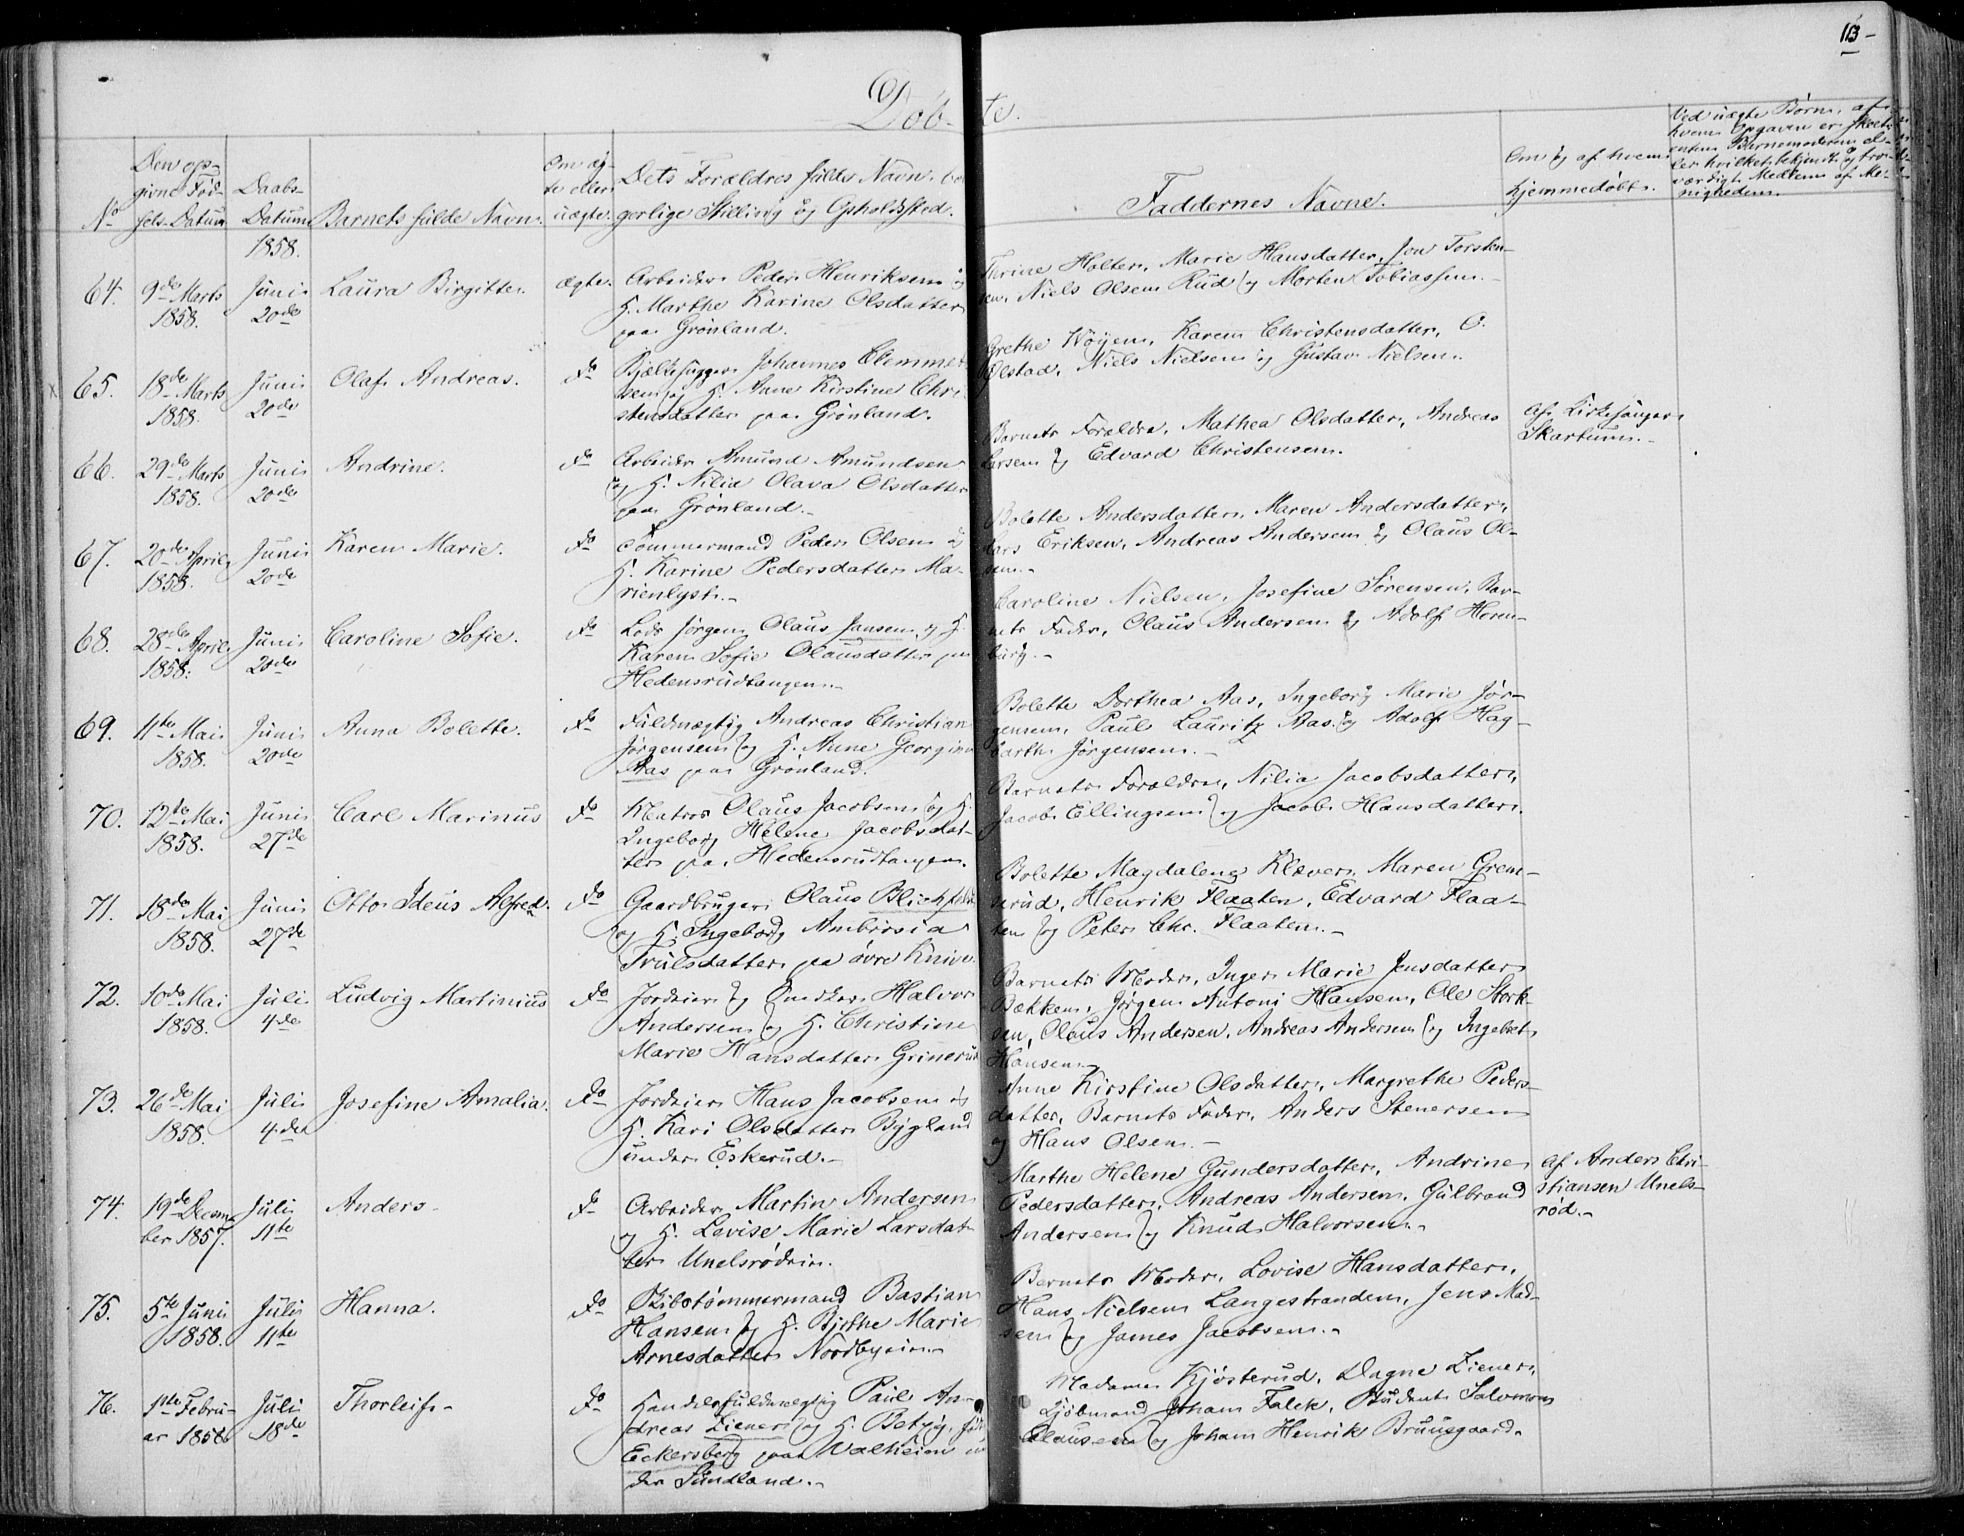 113
Döbte.
No
Den op-
givne Föd-
sels-Datum
Daabs-
Datum
1858.
Barnets fulde Navn.
Om æg-
te eller
uægte.
Dets Forældres fulde Navn, bor-
gerlige Stilling og Opholdssted.
Faddernes Navne.
Om og af hvem
hjemmedöbt.
Ved uægte Börn, af
hvem Opgaven er skeet,
enten Barnemoderen el-
ler hvilket bekjendt og tro-
værdigt Medlem af Me-
nigheden.
64.
9de Marts
1858.
Juni
20de
Laura Birgitte.
ægte.
Arbeider Peder Henriksen og
H. Marthe Karine Olsdatter
paa Grönland.
Thrine Holter, Marie Hansdatter, Jon Torsten-
sen, Niels Olsen Rud og Morten Tobiassen.
65.
18de Marts
1858.
Juni
20de
Olaf Andreas.
do
Bjælkehugger Johannes Clemmet-
sen og H. Anne Kirstine Chri-
stensdatter paa Grönland.
Grethe Höyen, Karen Christensdatter, O.
Ølstad, Niels Nielsen og Gustav Nielsen.
66.
29de Marts
1858.
Juni
20de
Andrine.
do
Arbeider Amund Amundsen
og H. Nilia Olava Olsdatter
paa Grönland.-
Barnets Forældre, Mathea Olsdatter, Andreas
Larsen og Edvard Christensen.
Af Kirkesanger
Skartum.-
67.
20de April
1858.
Juni
20de
Karen Marie.
do
Tömmermand Peder Olsen og
H. Karine Pedersdatter Ma-
rienlyst.-
Bolette Andersdatter, Maren Andersdatter,
Lars Eriksen, Andreas Andersen og Olaus Ol-
sen.-
68.
28de April
1858.
Juni
20de
Caroline Sofie.
do
Lods Jörgen Olaus Jansen og H.
Karen Sofie Olausdatter paa
Hedensrudtangen.-
Caroline Nielsen, Josefine Sörensen, Bar-
nets Fader, Olaus Andersen og Adolf Horn-
burg.-
69.
11te Mai
1858.
Juni
20de
Anna Bolette.
do
Fuldmægtig Andreas Christian
Jörgensen og H. Anne Georgine
Aas paa Grönland.
Bolette Dorthea Aas, Ingeborg Marie Jör-
gensen, Paul Lauritz Aas og Adolf Hag-
barth Jörgensen.-
70.
12te Mai
1858.
Juni
27de
Carl Marinus
do
Matros Olaus Jacobsen og H.
Ingeborg Helene Jacobsdat-
ter paa Hedensrudtangen.
Barnets Forældre, Nilia Jacobsdatter,
Jacob Ellingsen og Jacob Hansdatter.
71.
18de Mai
1858.
Juni
27de
Otto Ideus Alfred.
do
Gaardbruger Olaus Blichfeldt
og H. Ingeborg Ambrosia
Trulsdatter paa övre Knive.
Bolette Magdalena Klæver, Maren Grem-
serud, Henrik Flaaten, Edvard Flaa-
ten og Peter Chr. Flaaten.-
72.
10de Mai
1858.
Juli
4de
Ludvig Martinius
do
Jordeier og Snedker Halvor
Andersen og H. Christine
Marie Hansdatter Grinerud
Barnets Moder, Inger Marie Jensdatter
Bækken, Jörgen Antoni Hansen, Ole Stork-
sen, Olaus Andersen, Andreas Andersen og Ingebret
Hansen.
73.
26de Mai
1858.
Juli
4de
Josefine Amalia.
do
Jordeier Hans Jacobsen og
H. Kari Olsdatter Bygland
under Eskerud.-
Anne Kirstine Olsdatter, Margrethe Peders-
datter, Barnets Fader, Anders Stenersen
og Hans Olsen.-
74.
19de Decem-
ber 1857.
Juli
11te
Anders.
do
Arbeider Martin Andersen
og H. Levise Marie Larsdat-
ter Unelsrödeie.
Marthe Helene Gundersdatter, Andrine
Pedersdatter, Andreas Andersen, Gulbrand
Andersen og Knud Halvorsen.-
Af Anders Chri-
stiansen Unels-
röd.-
75.
5te Juni
1858.
Juli
11te
Hanna.
do
Skibstömmermand Bastian
Hansen og H. Birthe Marie
Arnesdatter Nordbyeie.-
Barnets Moder, Lovise Hansdatter,
Hans Nielsen Langestranden, Jens Mad-
sen og James Jacobsen.-
76.
1ste Febru-
ar 1858.
Juli
18de
Thorleif.-
do
Handelsfuldmægtig Paul An-
dreas Ziener og H. Betzy, född
Eckersberg paa Walheim un-
der Sundland.-
Madame Kjösterud, Dagne Ziener,
Kjöbmand Johan Falck, Student Salomon
Clausen og Johan Henrik Bruusgaard.